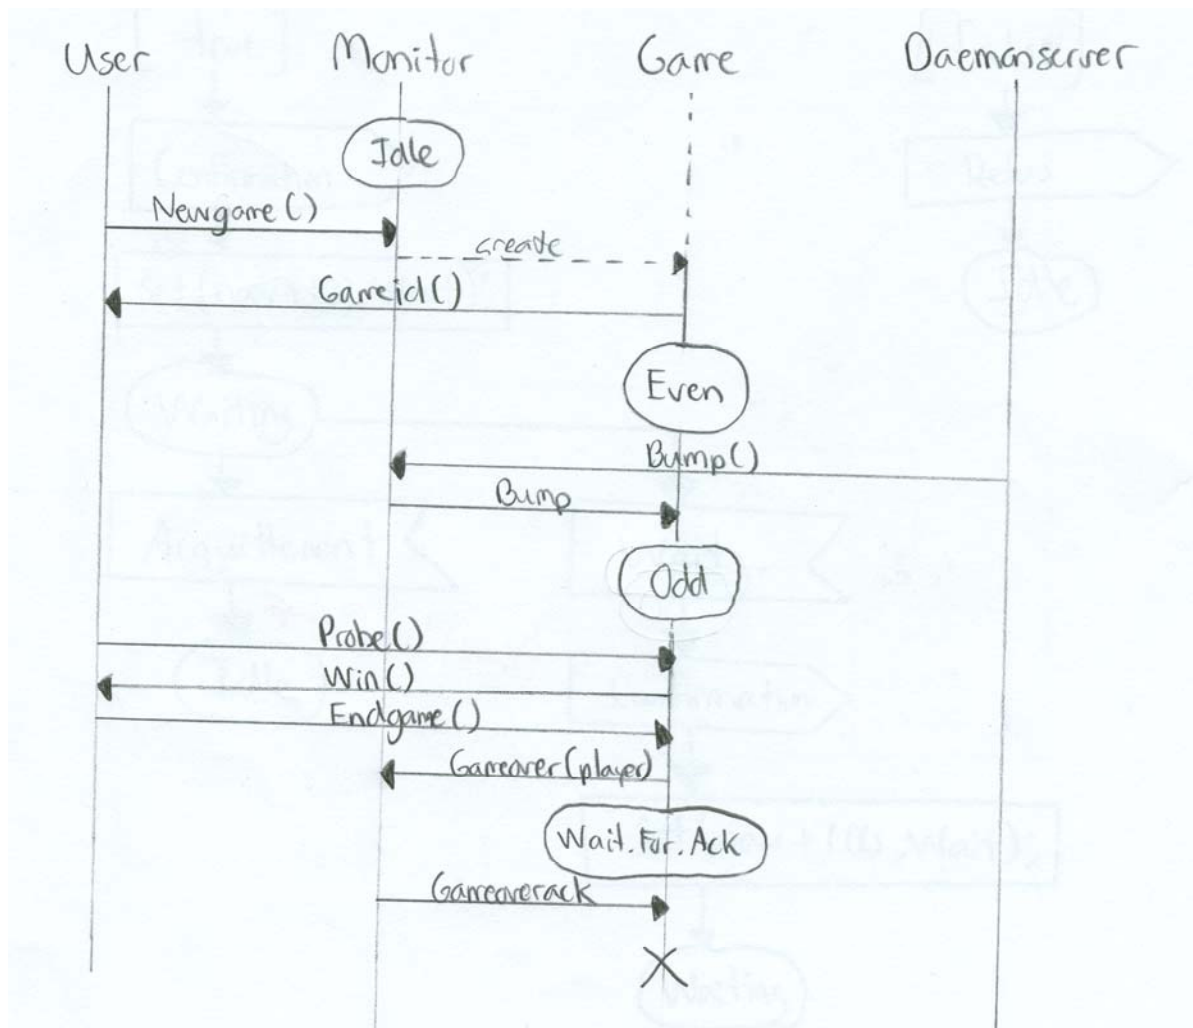 User Monitor Game Daemonserver
Idle
Newgame ()
create
Gameid ()
Even
Bump ()
Bump
Odd
Probe ()
Win ()
Endgame ()
Gameover (player)
Wait.For.Ack
Gameoverack